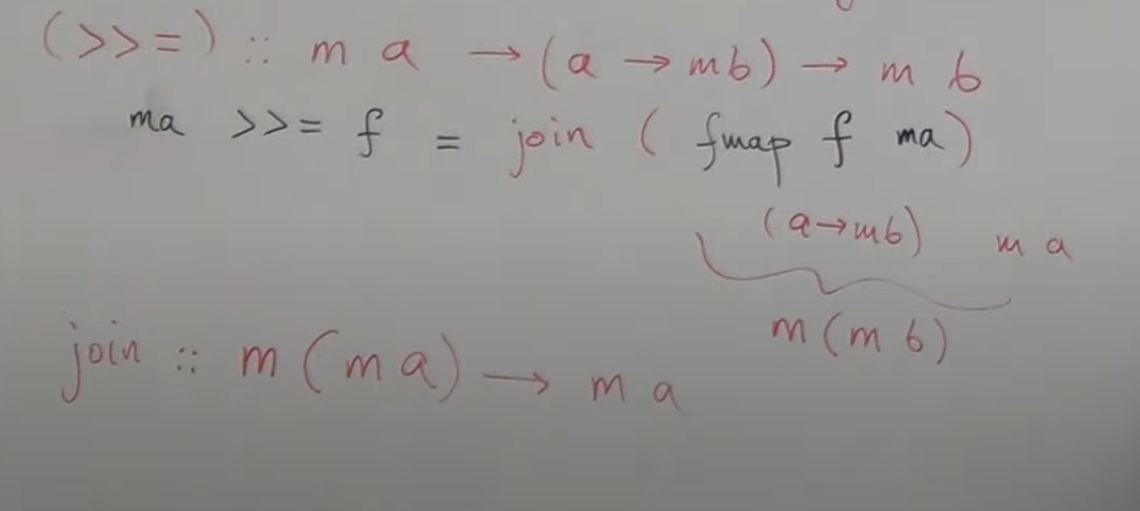 (>>=) :: m a → (a → mb) → m b
ma >>= f = join ( fmap f ma)
(a→mb) m a
m (m b)
join :: m (m a) → m a